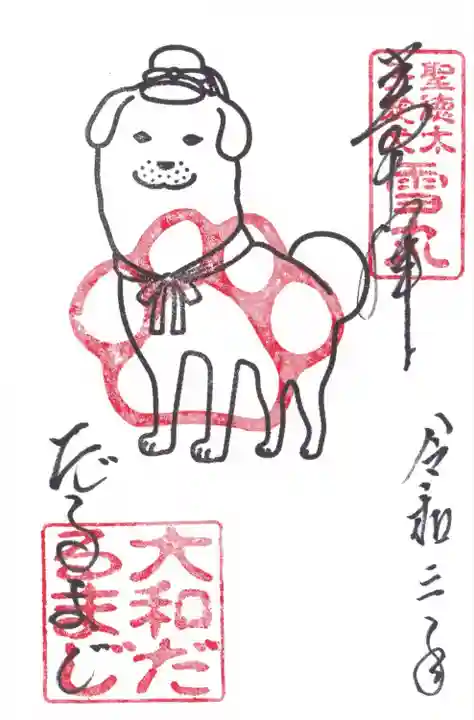 奉拝
聖徳太
子愛犬
雪丸
令和三年
だるまじ
大和だ
るまじ